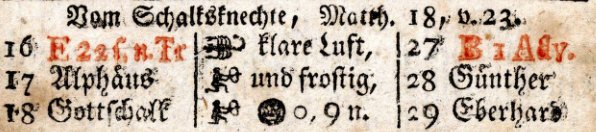 Vom Schalksknechte, Matth. 18, v. 23.
16 F 22 s. n. Tr klare Luft, 27 B 1 Adv.
17 Alphäus und frostig, 28 Günther
18 Gottschalk 0, 9 n. 29 Eberhard